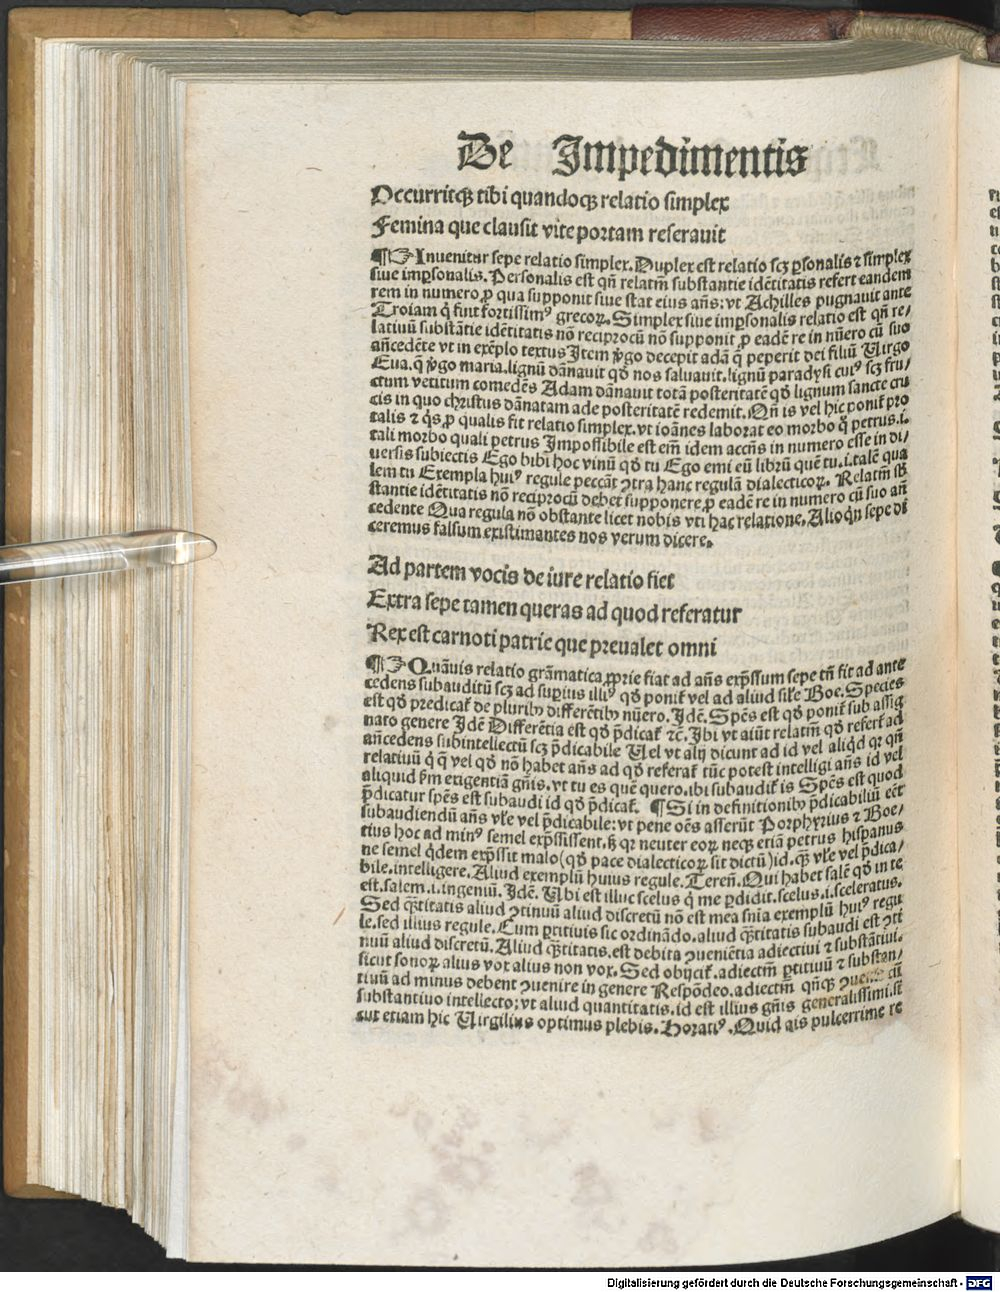 De Impedimentis
Occurritqꝫ tibi quandoqꝫ relatio simplex
Femina que clausit vite portam reserauit
¶☞Inuenitur sepe relatio simplex. Duplex est relatio scꝫ ꝑsonalis ⁊ simplex
siue imꝑsonalis. Personalis est qñ relatiū substantie idētitatis refert eandem
rem in numero ꝓ qua supponit siue stat eius añs: vt Achilles pugnauit ante
Troiam q̇ fuit fortissimꝰ grecoꝝ. Simplex siue imꝑsonalis relatio est qñ re/
latiuū substātie idētitatis nō reciprocū nō supponit ꝓ eadē re in nūero cū suo
añcedēte vt in exēplo textus Item v̇go decepit adā q̄ peperit dei filiū Uirgo
Eua. q̄ v̇go maria. lignū dānauit qd̕ nos saluauit. lignū paradysi cuiꝰ scꝫ fru/
ctum vetitum comedēs Adam dānauit totā posteritatē qd̕ lignum sancte cru
cis in quo christus dānatam ade posteritatē redemit. Qñ is vel hic ponit̄ pro
talis ⁊ q̇s ꝓ qualis fit relatio simplex. vt ioānes laborat eo morbo q̊ petrus. i.
tali morbo quali petrus Impossibile est em̄ idem accñs in numero esse in di/
uersis subiectis Ego bibi hoc vinū qd̕ tu Ego emi eū librū quē tu. i. talē qua
lem tu Exempla huiꝰ regule peccāt ↄtra hanc regulā dialecticoꝝ. Relatm̄ sb̄
stantie idētitatis nō reciprocū debet supponere ꝓ eadē re in numero cū suo añ
cedente Qua regula nō obstante licet nobis vti hac relatione. Alioqn̄ sepe di
ceremus falsum existimantes nos verum dicere.
Ad partem vocis de iure relatio fiet
Extra sepe tamen queras ad quod referatur
Rex est carnoti patrie que preualet omni
¶☞Quāuis relatio grāmatica ꝓprie fiat ad añs exp̄ssum sepe tñ fit ad ante
cedens subauditū scꝫ ad suꝑius illiꝰ qd̕ ponit̄ vel ad aliud sil̄e Boe. Species
est qd̕ predicat̄ de pluribꝰ differētibꝰ nūero. Idē. Spēs est qd̕ ponit̄ sub assig
nato genere Idē Differētia est qd̕ p̄dicat̄ ⁊c̄. Ibi vt aiūt relatm̄ qd̕ refert̄ ad
añcedens subintellectū scꝫ p̄dicabile Uel vt alij dicunt ad id vel aliqd̕ qꝛ qñ
relatiuū q̇ q̄ vel qd̕ nō habet añs ad qd̕ referat̄ tūc potest intelligi añs id vel
aliquid ẜm exigentiā gñis. vt tu es quē quero. ibi subaudit̄ is Spēs est quod
p̄dicatur spēs est subaudi id qd̕ p̄dicat̄. ¶Si in definitionibꝰ p̄dicabiliū eēt
subaudiendū añs vl̄e vel p̄dicabile: vt pene oēs asserūt Porphyrius ⁊ Boe/
tius hoc ad minꝰ semel exp̄ssissent. sꝫ qꝛ neuter eoꝝ neqꝫ etiā petrus hispanus
ne semel q̇dem exp̄ssit malo (qd̕ pace dialecticoꝝ sit dictū) id. qꝫ vl̄e vel p̄dica/
bile. intelligere. Aliud exemplū huius regule. Tereñ. Qui habet salē qd̕ in te
est. salem. i. ingeniū. Idē. Ubi est illuc scelus q̇ me ꝑdidit. scelus. i. sceleratus.
Sed qꝫtitatis aliud ↄtinuū aliud discretū nō est mea snīa exemplū huiꝰ regu
le. sed illius regule. Cum ꝑtitiuis sic ordināndo. aliud qꝫtitatis subaudi est ↄti
nuū aliud discretū. Aliud qꝫtitatis. est debita ↄueniētia adiectiui ⁊ substātiui.
sicut sonoꝝ alius vox alius non vox. Sed obijcit̄. adiectm̄ ꝑtitiuū ⁊ substan/
tiuū ad minus debent ↄuenire in genere Respōdeo. adiectm̄ qñqꝫ cū
substantiuo intellecto: vt aliud quantitatis. id est illius gñis generalissimi. si
cut etiam hic Uirgilius optimus plebis. Horatiꝰ. Quid ais pulcerrime re
Digitalisierung gefördert durch die Deutsche Forschungsgemeinschaft - DFG